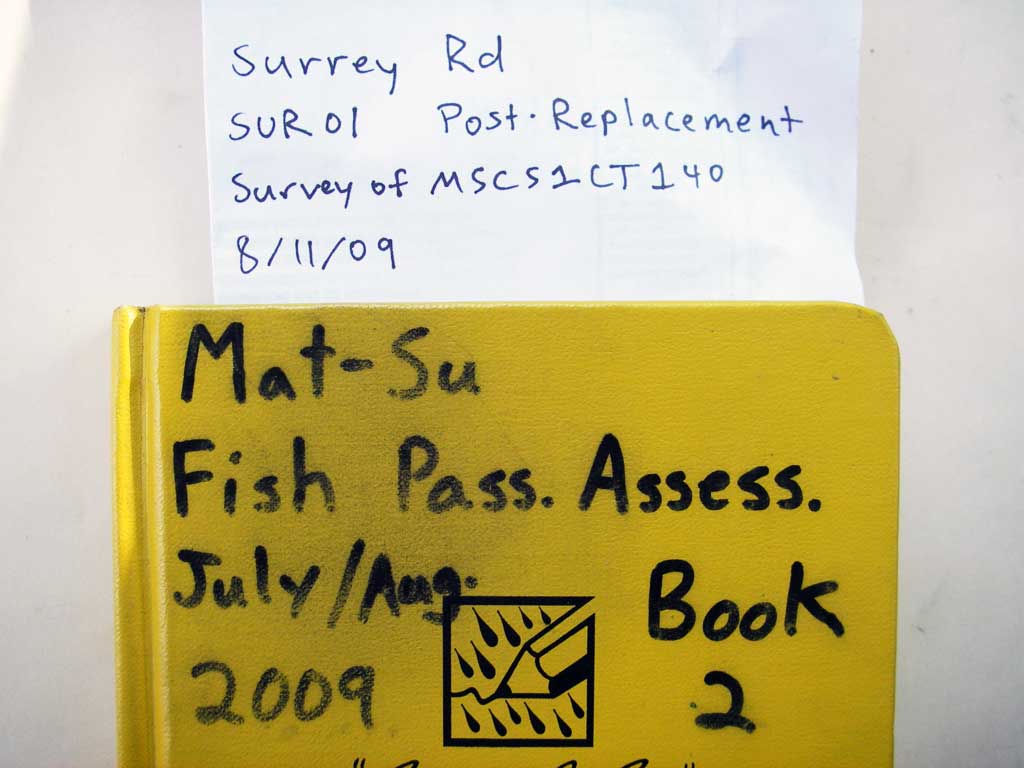 Surrey Rd
SUR01 Post-Replacement
Survey of MSCS1CT140
8/11/09
Mat-Su
Fish Pass. Assess.
July/Aug. Book
2009 2